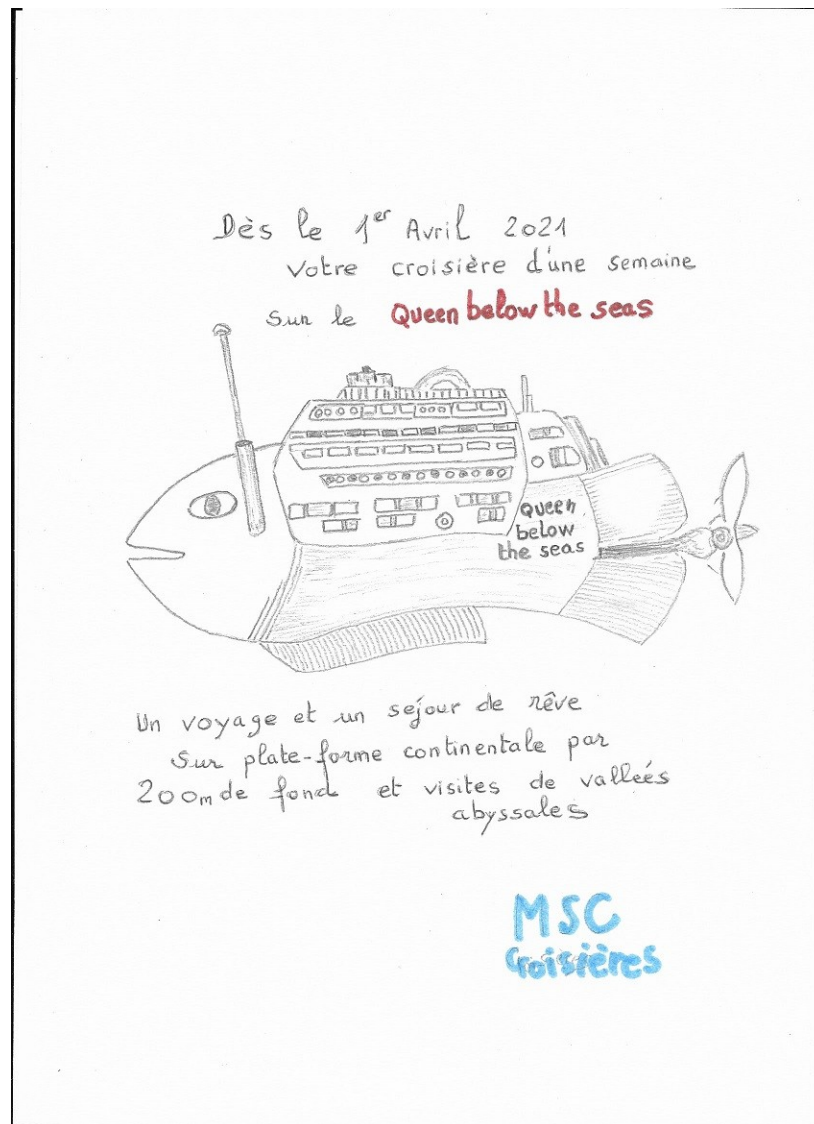 Dès le 1er Avril 2021
Votre croisière d'une semaine
Sur le Queen below the seas
Queen
below
the seas
Un voyage et un sejour de rêve
Sur plate-forme continentale par
200m de fond et visites de valleés
abyssales
MSC
Croisières